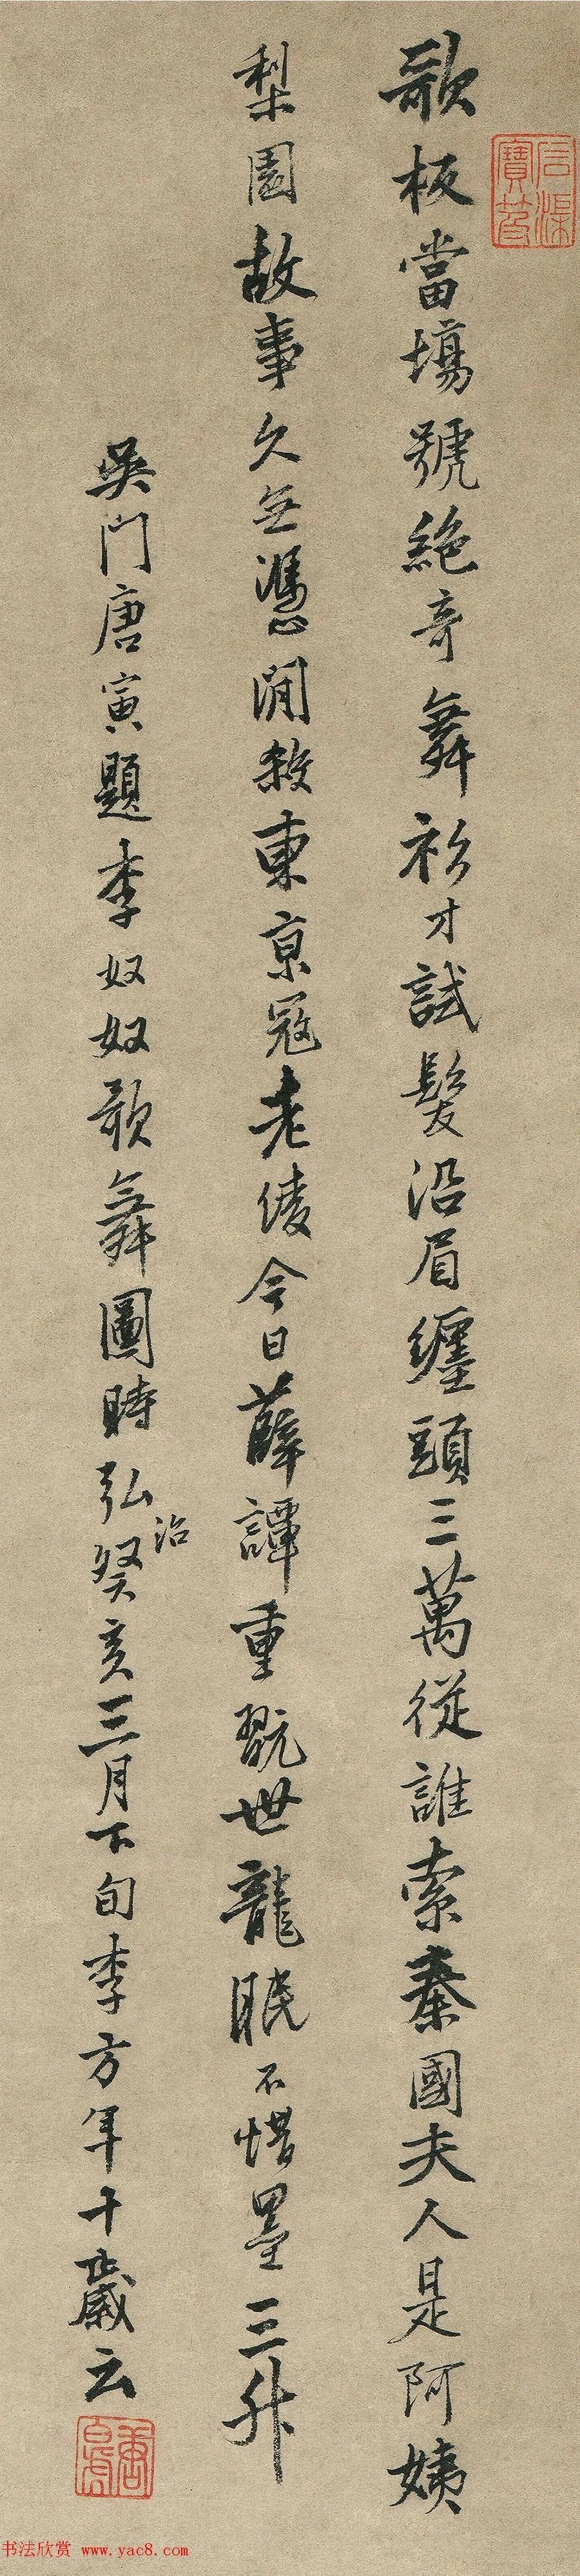 歌板當場號絶奇舞衫才試髮沿眉纏頭三萬從誰索秦國夫人是阿姨
梨園故事久無憑閒殺東京寇老倰今日薛譚重翫世龍眠不惜墨三升
吳門唐寅題李奴奴歌舞圖時弘治癸亥三月下旬李方年十歲云
唐白虎
书法欣赏 www.yac8.com